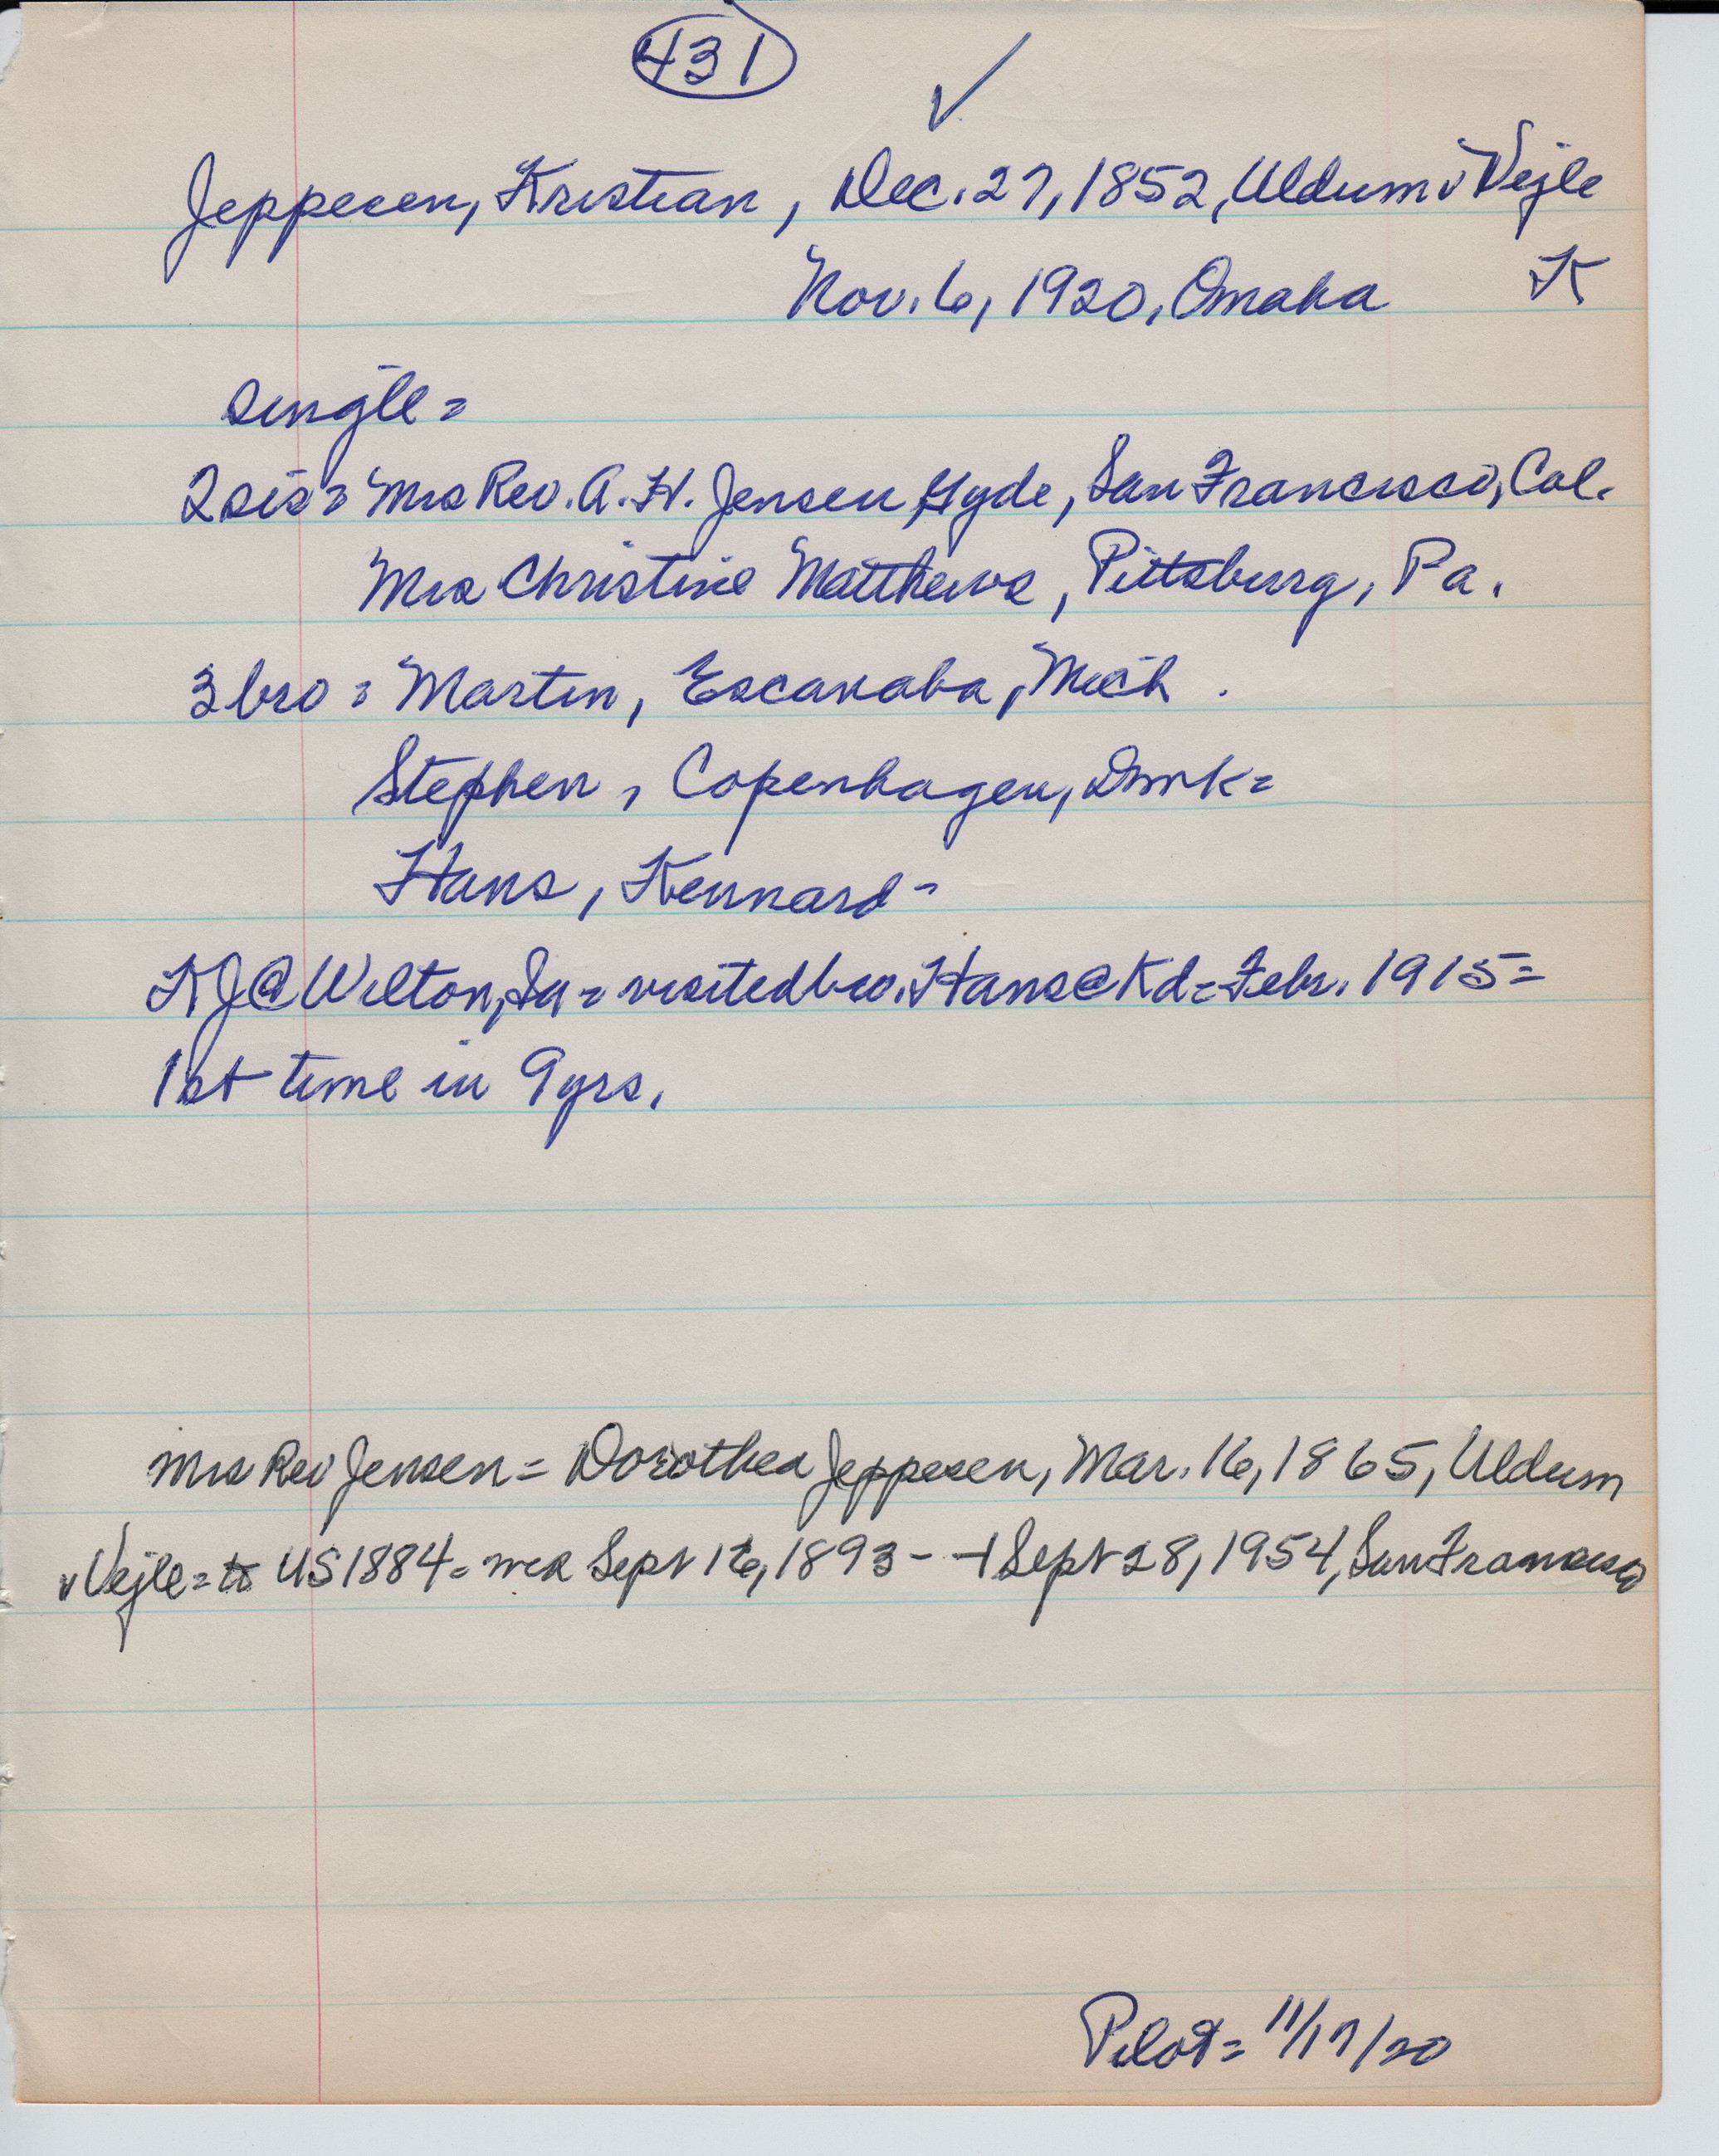 431 ✓
Jeppesen, Kristian, Dec. 27, 1852, Uldum v Vejle
Nov. 6, 1920, Omaha K
single =
2 sis = Mrs Rev. A. H. Jensen Gyde, San Francisco, Cal.
Mrs Christine Matthews, Pittsburg, Pa.
3 bro = Martin, Escanaba, Mich.
Stephen, Copenhagen, Dmrk =
Hans, Kennard -
KJ @ Wilton, Ia = visited bro. Hans @ Kd = Febr. 1915 =
1st time in 9 yrs.
Mrs Rev Jensen = Dorothea Jeppesen, Mar. 16, 1865, Uldum
v Vejle = to US 1884 = mra Sept 16, 1893 - + Sept 28, 1954, San Francisco
Pilot = 11/17/20